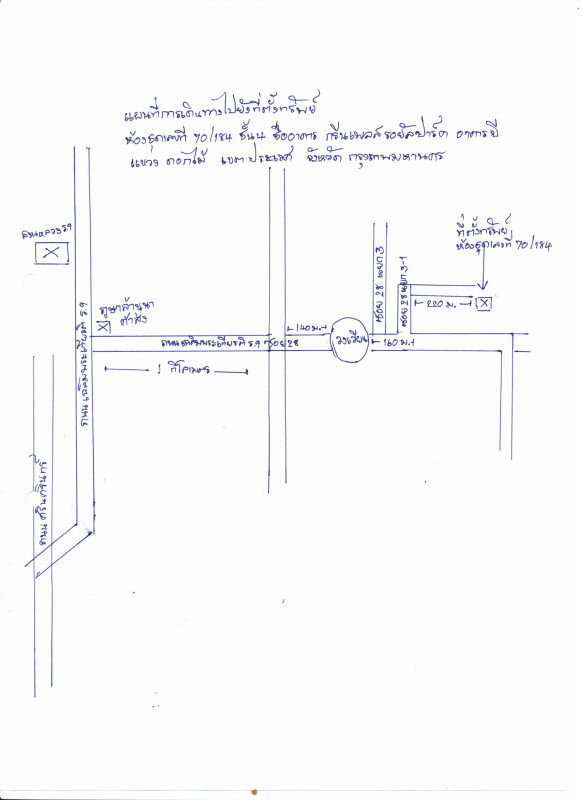 แผนที่การเดินทางไปยังที่ตั้งทรัพย์
ห้องชุดเลขที่ 70/184 ชั้น 4 ชื่ออาคาร กรีนเพลส รอยัลปาร์ค อาคารบี
แขวง ดอกไม้ เขต ประเวศ จังหวัด กรุงเทพมหานคร
สวนหลวง ร.9
X
ภูษาล้านนา
X
ถนนเฉลิมพระเกียรติ ร.9
ถนนเฉลิมพระเกียรติ ร.9 ซอย 28
1 กิโลเมตร
140 ม.
วงเวียน
160 ม.
ซอย 28 แยก 3
ซอย 28 แยก 3-1
ที่ตั้งทรัพย์
ห้องชุดเลขที่ 70/184
220 ม.
X
ถนนศรีนครินทร์